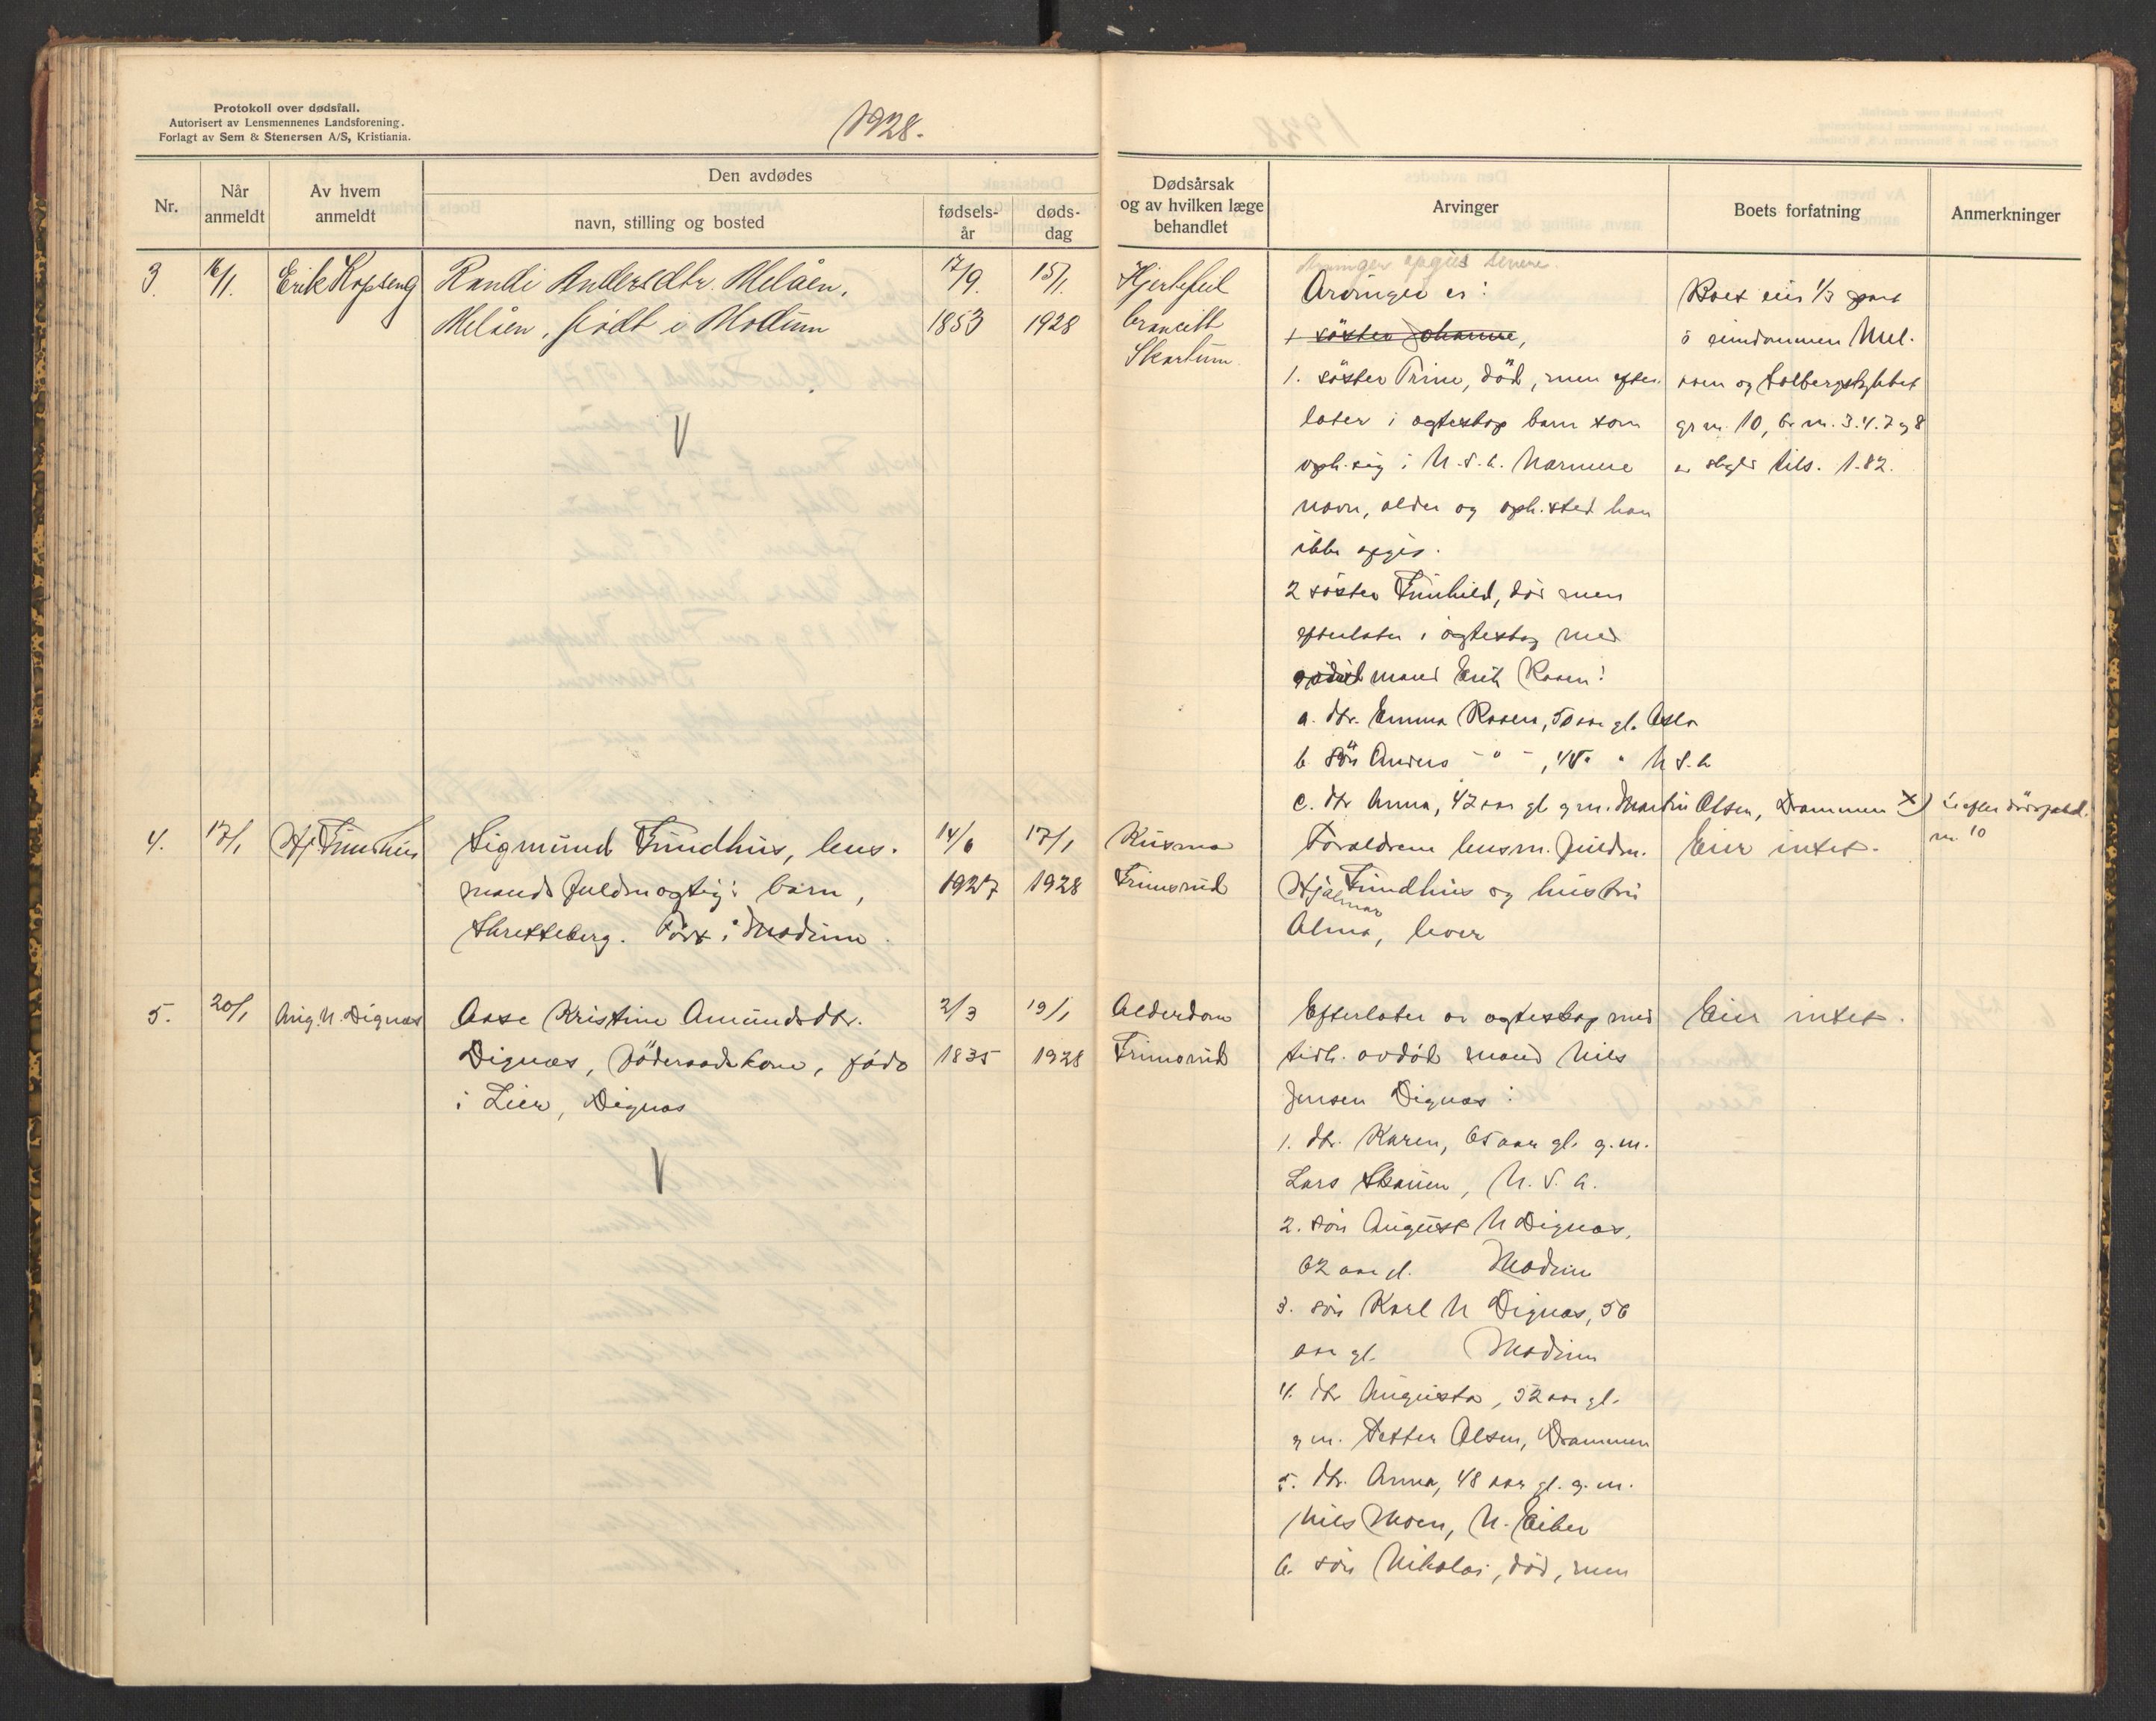 Protokoll over dødsfall.
Autorisert av Lensmennenes Landsforening.
Forlagt av Sem & Stenersen A/S, Kristiania.
1928.
Nr.
Når anmeldt
Av hvem anmeldt
Den avdødes
navn, stilling og bosted
fødsels-
år
døds-
dag
Dødsårsak
og av hvilken læge
behandlet
Arvinger
Boets forfatning
Anmerkninger
3. 16/1. Erik Kopseng
Randi Andersdtr. Melåen,
Melåen, født i Modum
17/9. 1853
15/1. 1928
Hjertefeil
Skartum
Arvinger opgies senere.
Arvinger er:
1 söster Johanne,
1. söster Trine, död, men efter.
later i egteskap barn som
oph. sig i U.S.A. Nærmere
navn, alder og oph.sted kan
ikke opgis.
2 söster Gunhild, död men
efterlater i egteskap med
mand Erik Roaen:
a. dtr. Emma Roaen, 50 aar gl. Oslo
b sön Anders - " - , 45 " U S. A
c. dtr Anna, 42 aar gl g.m. Martin Olsen, Drammen x)
Boet eier 1/3 part
i eiendommen Mel.
aaen og
gr nr. 10, br nr. 3.4.7 og 8
skyld tils. 1.82.
nr. 10
4. 17/1 Hj. Fundhus
Sigmund Fundhus, lens.
mandsfuldmægtigs barn,
Skretteberg. Født i Modum.
14/6 1927
17/1 1928
Frimsrud
Forældrene lensm. fuldm.
Hjalmar Fundhus og hustru
Alma, lever
Eier intet.
5. 20/1 Aug. N. Dignæs
Aase Kristine Amundsdtr.
Dignæs, föderaadskone, född
i Lier, Dignæs
2/3 1835
19/1 1928
Alderdom
Frimsrud
Efterlater av egteskap med
tidl. avdöd mand Nils
Jensen Dignæs:
1. dtr. Karen, 65 aar gl. g.m.
Lars Skauen, U.S.A.
2. sön August N Dignæs,
62 aar gl. Modum
3. sön Karl N Dignæs, 56
aar gl. Modum
4. dtr Augusta, 52 aar gl.
g m. Petter Olsen, Drammen
5. dtr. Anna, 48 aar gl. g.m.
Nils Moen, N. Eiker
6. sön Nikolai, död, men
Eier intet.